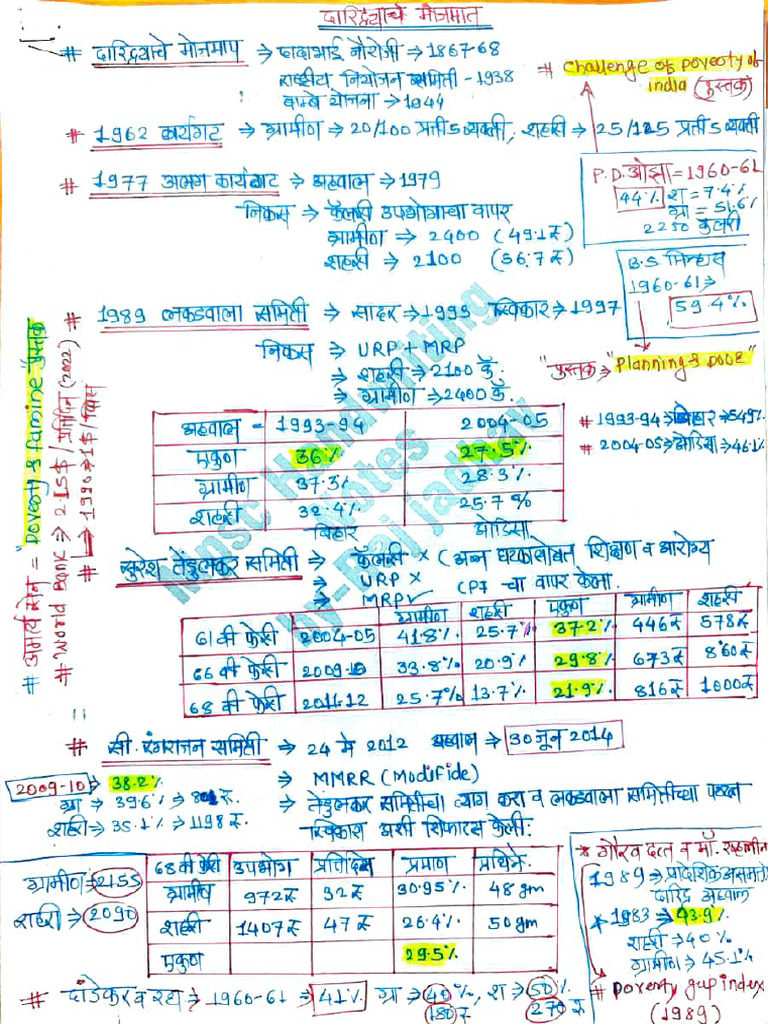 दारिद्र्याचे मोजमाप
# दारिद्र्याचे मोजमाप ⇒ दादाभाई नौरोजी ⇒ 1867-68
राष्ट्रीय नियोजन समिती - 1938
बाम्बे योजना ⇒ 1944
# Challenge of poverty of india (पुस्तक)
# 1962 कार्यगट ⇒ ग्रामीण ⇒ 20/100 प्रती 5 व्यक्ती, शहरी ⇒ 25/125 प्रती 5 व्यक्ती
# 1977 अलग कार्यगट ⇒ अहवाल ⇒ 1979
निकस ⇒ कॅलरी उपभोगाचा वापर
ग्रामीण ⇒ 2400 (49.1 रु)
शहरी ⇒ 2100 (56.7 रु)
P.D. ओझा = 1960-61
44% श = 7.4%
ग्रा = 51.6%
2250 कॅलरी
B.S मिन्हास
1960-61 ⇒
59.4%
"पुस्तक ⇒ "Planning & pooR"
# 1989 लकडवाला समिती ⇒ सादर ⇒ 1993 स्विकार ⇒ 1997
निकस ⇒ URP + MRP
⇒ शहरी ⇒ 2100 कॅ.
⇒ ग्रामीण ⇒ 2400 कॅ.
अहवाल = 1993-94 2004-05
एकुण 36% 27.5%
ग्रामीण 37.3% 28.3%
शहरी 32.4% 25.7%
बिहार ओडिसा
# 1993-94 ⇒ बिहार ⇒ 54.9%
# 2004-05 ⇒ ओडिसा ⇒ 46.1%
# अमर्त्य सेन = "poverty & famine" पुस्तक
# World Bank ⇒ 2.15$ / प्रतिदिन (2022)
# ↳ 1990 ⇒ 1$ / दिवस
सुरेश तेंडुलकर समिती ⇒ कॅलरी × (अन्न घटकासोबत शिक्षण व आरोग्य
⇒ URP × CPI चा वापर केला.
⇒ MRP✓
ग्रामीण शहरी एकुण ग्रामीण शहरी
61 वी फेरी 2004-05 41.8% 25.7% 37.2% 446 रु 578 रु
66 वी फेरी 2009-10 33.8% 20.9% 29.8% 673 रु 860 रु
68 वी फेरी 2011-12 25.7% 13.7% 21.9% 816 रु 1000 रु
# सी. रंगराजन समिती ⇒ 24 मे 2012 अहवाल ⇒ 30 जून 2014
⇒ MMRR (Modifide)
2009-10 ⇒ 38.2%
ग्रा ⇒ 39.6% ⇒ 801 रु.
शहरी ⇒ 35.1% ⇒ 1198 रु.
⇒ तेंडुलकर समितीचा त्याग करा व लकडवाला समितीच्या पध्दत
स्विकारा अशी शिफारस केली:
68 वी फेरी उपभोग प्रतिदिन प्रमाण प्रथिने
ग्रामीण 972 रु 32 रु 30.95% 48 gm
शहरी 1407 रु 47 रु 26.4% 50 gm
एकुण 29.5%
ग्रामीण ⇒ 2155
शहरी ⇒ 2090
* गौरव दत्त व मॉ.
1989 ⇒ प्रादेशिक असमतोल
दारिद्र अहवाल
* 1983 ⇒ 43.9%
शहरी ⇒ 40%
ग्रामीण ⇒ 45.1%
# poverty gup index
(1989)
# दांडेकर व रथ ⇒ 1960-61 ⇒ 41% ग्रा ⇒ 40%, श ⇒ 50%
180 रु 270 रु
Mpsc Handwriting
Notes
by-Raj jadhav